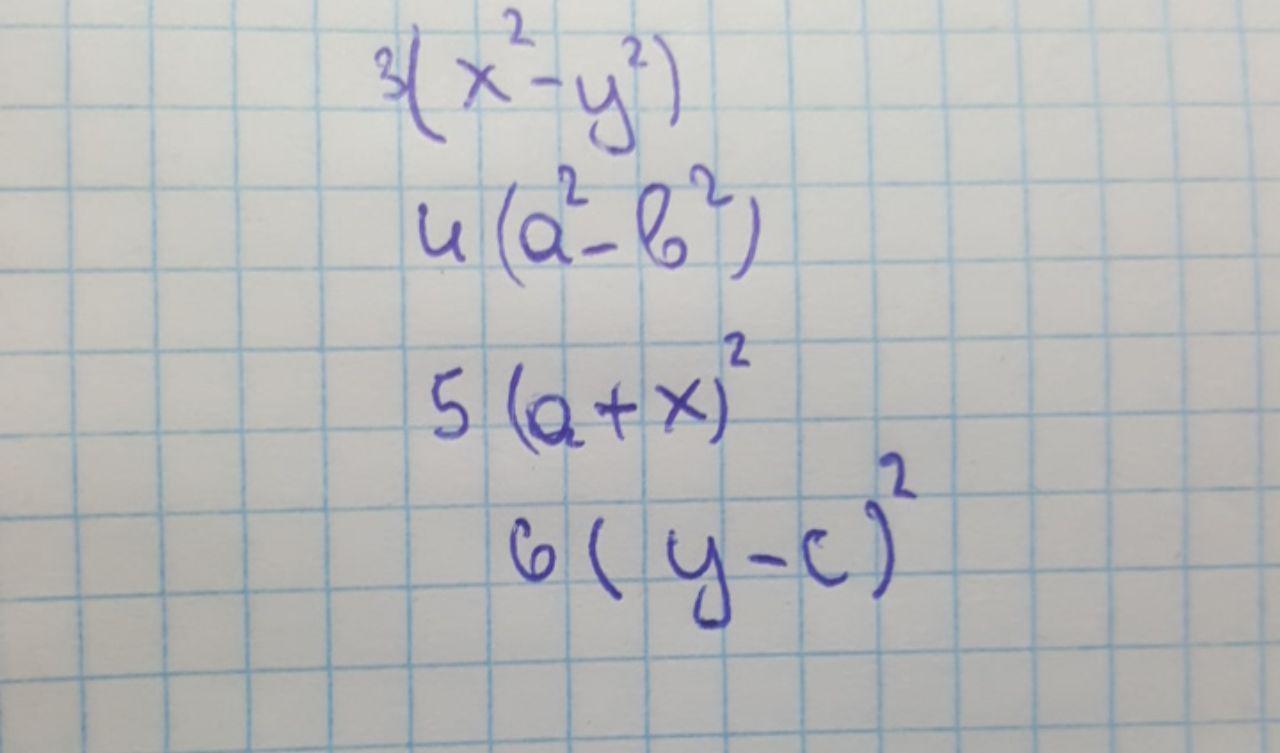 3(x²-y²)
4(a²-b²)
5(a+x)²
6(y-c)²